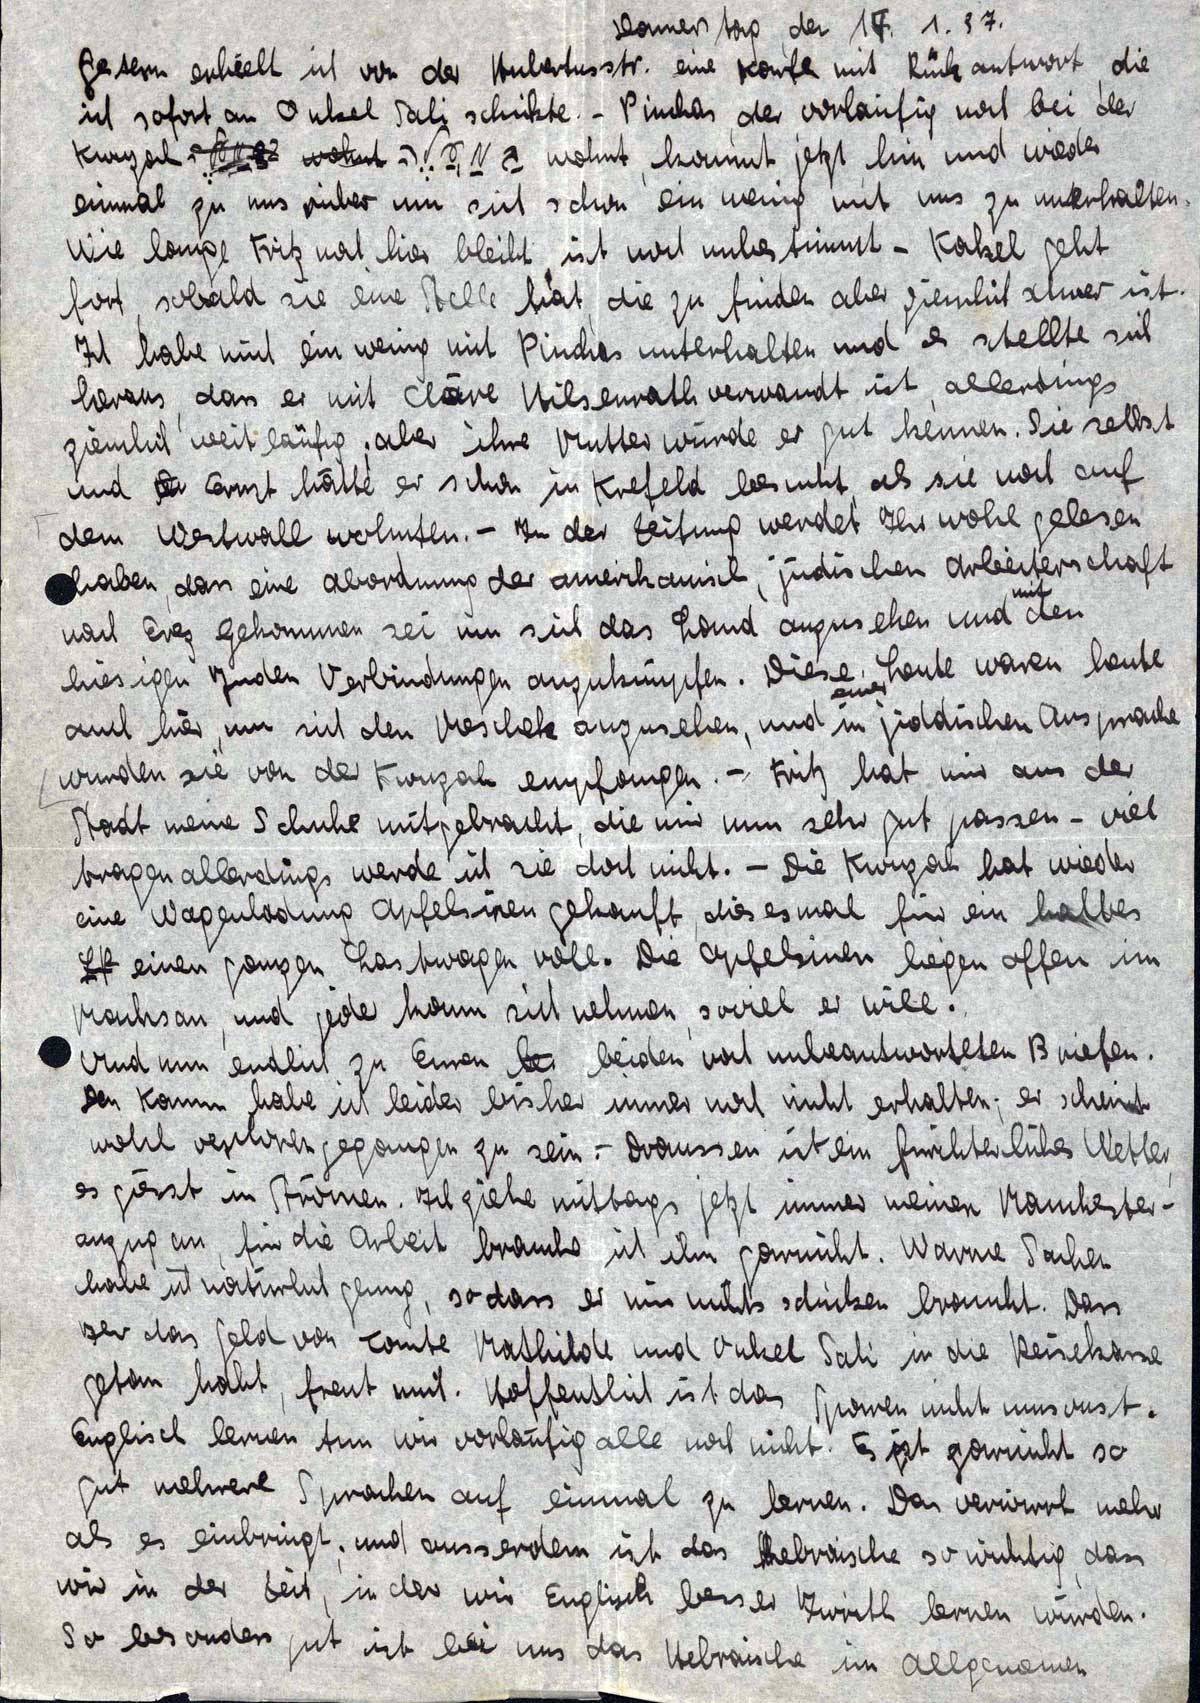 Donnerstag den 14. 1. 37.
Gestern erhielt ich von der Hubertusstr. eine Karte mit Rückantwort, die
ich sofort an Onkel Sali schickte. - Pinchas, der vorläufig noch bei der
Kwuzah wohnt, kommt jetzt hin und wieder
einmal zu uns rüber um sich schon ein wenig mit uns zu unterhalten.
Wie lange Fritz noch hier bleibt ist noch unbestimmt - Katel geht
fort, sobald sie eine Stelle hat, die zu finden aber ziemlich schwer ist.
Ich habe mich ein wenig mit Pinchas unterhalten und es stellte sich
heraus, dass er mit Cläre Hilsenrath verwandt ist, allerdings
ziemlich weitläufig, aber ihre Mutter würde er gut kennen. Sie selbst
und Ernst hätte er schon in Krefeld besucht, als sie noch auf
dem Westwall wohnten. - In der Zeitung werdet Ihr wohl gelesen
haben, dass eine Abordnung der amerikanisch, jüdischen Arbeiterschaft
nach Erez gekommen sei um sich das Land anzusehen und mit den
hiesigen Juden Verbindungen anzuknüpfen. Diese Leute waren heute
auch hier, um sich den Meschek anzusehen, und in einer jiddischen Ansprache
wurden sie von der Kwuzah empfangen. - Fritz hat mir aus der
Stadt meine Schuhe mitgebracht, die mir nun sehr gut passen - viel
tragen allerdings werde ich sie doch nicht. - Die Kwuzah hat wieder
eine Wagenladung Apfelsinen gekauft, diesesmal für ein halbes
Lst einen ganzen Lastwagen voll. Die Apfelsinen liegen offen im
Machsan, und jeder kann sich nehmen, soviel er will.
Und nun endlich zu Euren be beiden noch unbeantworteten Briefen.
Den Kamm habe ich leider bisher immer noch nicht erhalten; er scheint
wohl verloren gegangen zu sein. - Draussen ist ein fürchterliches Wetter,
es giesst in Strömen. Ich ziehe mittags jetzt immer meinen Manchester-
anzug an, für die Arbeit brauche ich ihn garnicht. Warme Sachen
habe ich natürlich genug, sodass er mir nichts schicken braucht. Dass
Ihr das Geld von Tante Mathilde und Onkel Sali in die Reisekasse
getan habt, freut mich. Hoffentlich ist das Sparen nicht umsonst.
Englisch lernen tun wir vorläufig alle noch nicht. Es ist garnicht so
gut mehrere Sprachen auf einmal zu lernen. Das verwirrt mehr
als es einbringt, und ausserdem ist das Hebräische so wichtig, dass
wir in der Zeit, in der wir Englisch besser Iwrith lernen würden.
So besonders gut ist bei uns das Hebräische im Allgemeinen